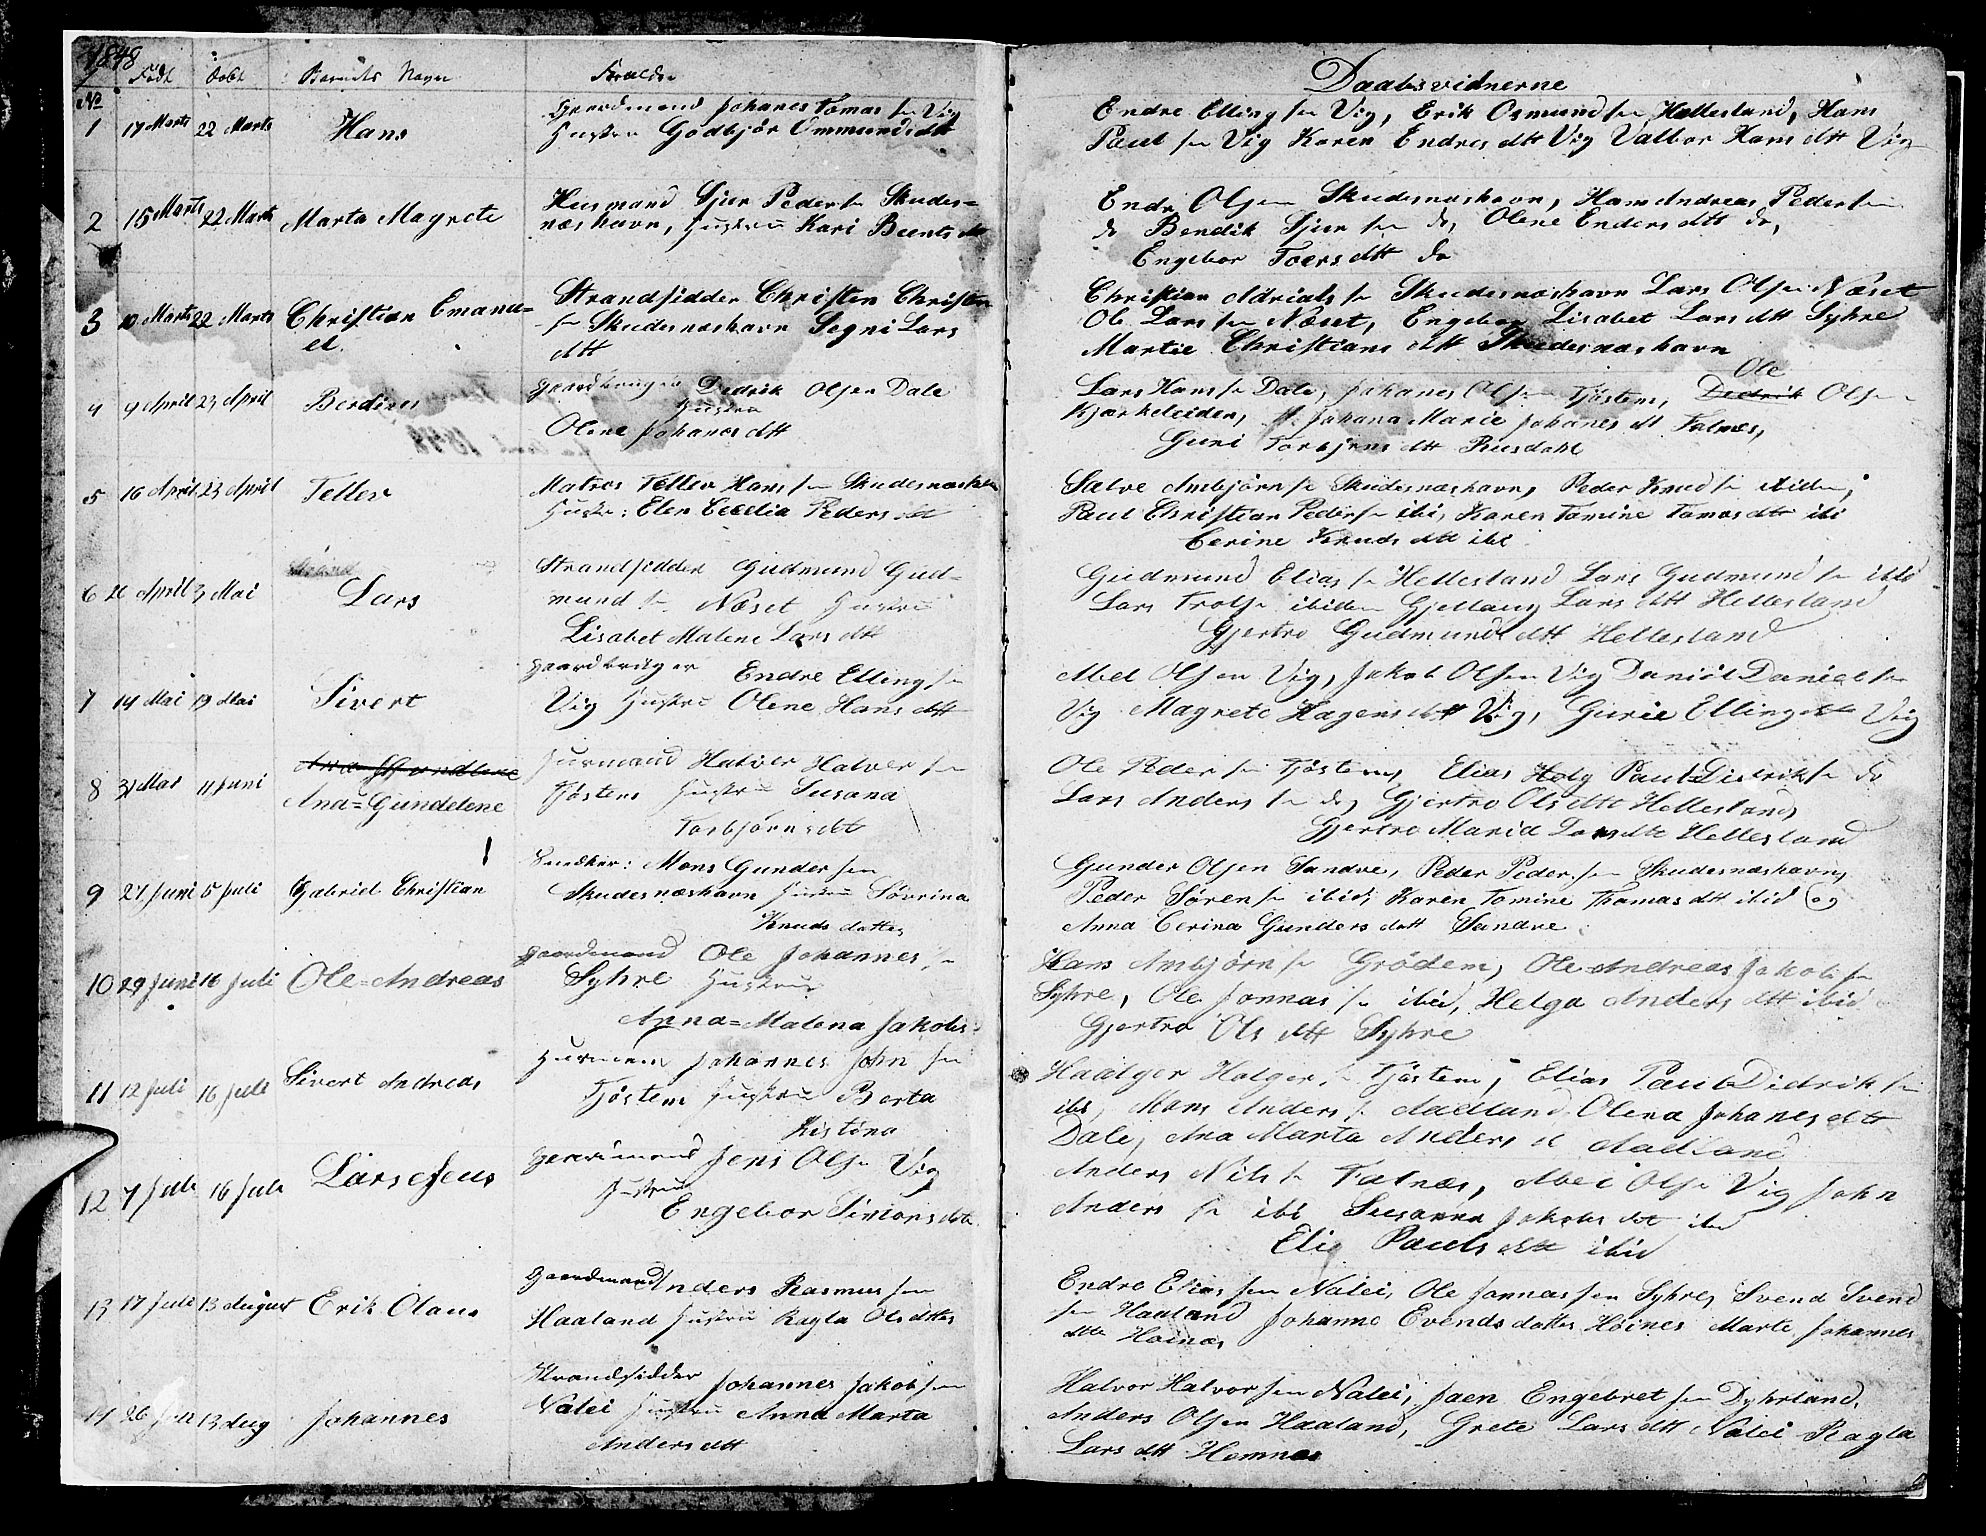 1848
No Født Døbt Barnets Navn Forældre
1 17 Marts 22 Marts Hans Gaardmand Johanes Tomas sen Vig
Hustru Godbjør Ommunds dtt
2 15 Marts 22 Marts Marta Magrete Husmand Sjur Peders. Skudes=
næshavn, Hustru Kari Bents dtt
3 10 Marts 22 Marts Christian Emanu=
el. Strandsidder Christen Christen
sen Skudesnæshavn Segni Lars
dtt
4 9 April 23 April Berdines Gaardbruger Dedrik Olsen Dale
Hustru
Olene Johanes dtt
5 16 April 23 April Tellev Matros Tellev Hans sen Skudesnæshavn
Hustr: Elen Cecelia Peders dt
6 20 April 3 Mai Lars Strandsidder Gudmund Gud=
mund sen Næset Hustru
Lisabet Malene Lars dtt
7 14 Mai 19 Mai Sivert Gaardbruger Endre Elling sen
Vig Hustru Olene Hans dtt
8 31 Mai 11 Juni Ana Gundelene
Ana=Gundelene Husmand Halver Halver sen
Tjøstem Hustru Susana
Torbjørns dtt
9 27 Juni 5 Juli Gabriel Christian Snedker: Mons Gunder sen
Skudesnæshavn Hustru Sørina
Knuds datter
10 29 Juni 16 Juli Ole=Andreas Gaardmand Ole Johannes sen
Syhre Hustru
Anna=Malena Jakobs
11 12 Juli 16 Juli Sivert Andreas Husmann Johannes John sen
Tjøstem Hustru Berta
Kistina
12 7 Juli 16 Juli Lars Gaardmand Jens Olsen Vig
Hustru
Engebor Simons dtt
13 17 Juli 13 August Erik Olaus Gaardmand Anders Rasmus sen
Haaland Hustru Ragla Ols datter
14 26 Juli 13 Aug Johannes Strandsidder Johannes Jakob sen
Nalei Hustru Anna Marta
Anders dtt
Daabsvidnerne
Endre Elling sen Vig, Erik Osmund sen Hellesland, Hans
Paul sen Vig Karen Endres dtt Vig Valbor Hans dtt Vig
Endr Olsen Skudesnæshavn, Hans Andreas Pedersen
do Bendik Sjur sen do, Olene Enders dtt do,
Engebor Toers dtt do
Christian Adrials sen Skudesnæshavn Lars Olsen Næset
Ole Lars sen Næset, Engebor Lisabet Lars dtt Syhre
Martie Christians dtt Skudesnæshavn
Ole
Lars Hans sen Dale, Johanes Olsen Tjøstem, Dedrik Olsen
Kjærkeleiden, Johana Marie Johanes dt Falnæs,
Guri Torbjørns dtt Rusdahl
Salve Ambjørn sen Skudesnæshavn, Peder Knud sen ibiden,
Paul Christian Peder sen ibi, Karen Tomine Tomas dtt ibi
Cerine Knuds dtt ibi
Gudmund Elias sen Hellesland Lars Gudmund sen ibid
Lars Trolsen ibiden Gjellaug Lars dtt Hellesland
Gjertro Gudmunds dtt Hellesland
Abel Olsen Vig, Jakob Olsen Vig Daniel Daniel sen
Vig Magrete Hagens dtt Vig, Gurie Ellings dtt Vig
Ole Peder sen Tjøstem, Elias Helg Paul Didrik sen do
Lars Anders sen do, Gjertro Ols dtt Hellesland,
Gjertro Maria Lars dtt Hellesland
Gunder Olsen Sandve, Peder Peder sen Skudesnæshavn,
Peder Søren sen ibid, Karen Tomine Thomas dtt ibid og
Anna Cerina Gunders datt Sandve
Hans Ambjørn sen Grødem, Ole Andreas Jakob sen
Syhre, Ole Jonnas sen ibid, Helga Anders dtt ibid
Gjertro Ols dtt Syhre
Haalger Holger sen Tjøstem, Elias Paul Didrik sen
ibi, Mons Anders sen Aadland Olena Johanes dtt
Dale, Ana Marta Anders dt Aadland
Anders Nils sen Falnæs, Abel Olsen Vig John
Anders sen ibi Susanna Jakobs dtt ibid
Elie Pauls dtt ibid
Endre Elias sen Nalei, Ole Jonnas sen Syhre, Svend Svend
sen Haaland Johanne Evends datter Høines Marte Johannes
dtt Høines
Halvor Halvor sen Nalei, Jaen Engebret sen Dyhrland,
Anders Olsen Haaland, Grete Lars dtt Nalei Ragla
Lars dtt Hemnes